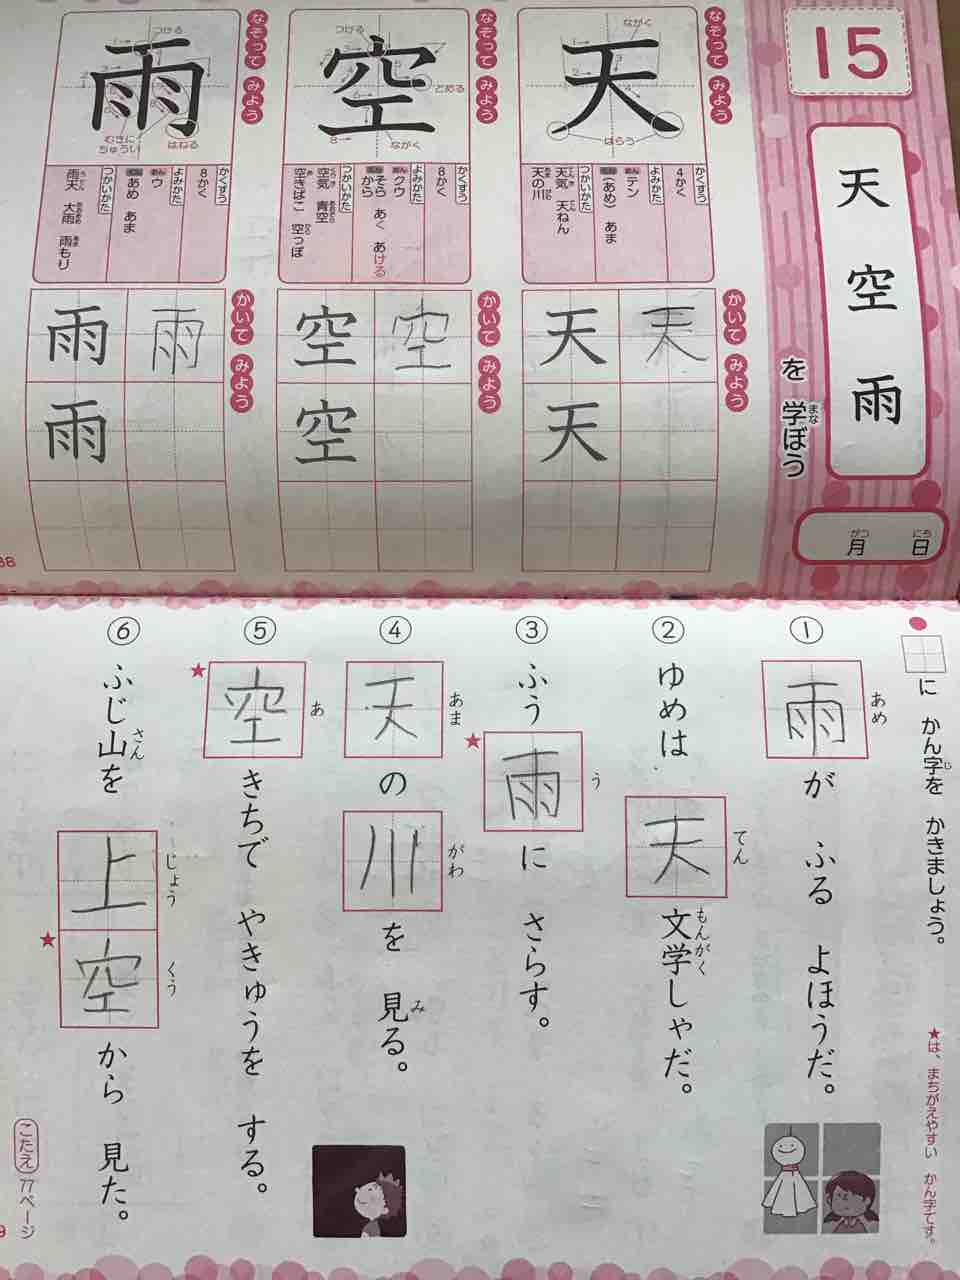 15
天 空 雨
を 学ぼう
まな
月 日
がつ にち
なぞって みよう
天
ながく
はらう
かくすう
4かく
よみかた
おん テン
くん (あめ) あま
つかいかた
天気 天ねん
天の川
かいて みよう
天 天
天
なぞって みよう
空
つける
とめる
ながく
かくすう
8かく
よみかた
おん クウ
くん そら あく あける
から
つかいかた
空気 青空
空きばこ 空っぽ
かいて みよう
空 空
空
なぞって みよう
雨
つける
はねる
むきに
ちゅうい
かくすう
8かく
よみかた
おん ウ
くん あめ あま
つかいかた
雨天 大雨 雨もり
かいて みよう
雨 雨
雨
に かん字を かきましょう。
じ
★は、まちがえやすい かん字です。
① 雨が ふる よほうだ。
あめ
② ゆめは 天文学しゃだ。
てん もんがく
③ ふう雨に さらす。
★ う
④ 天の川を 見る。
あま がわ み
⑤ 空きちで やきゅうを する。
★ あ
⑥ ふじ山を 上空から 見た。
さん じょう ★ くう
こたえ 77ページ